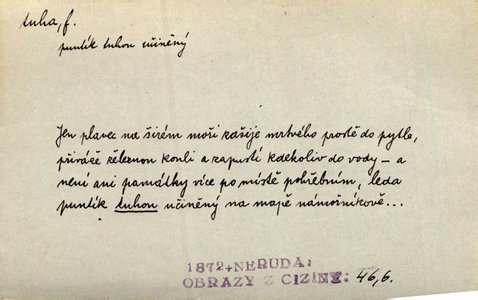 tuha, f.
puntík tuhou učiněný
Jen plavec na širém moři zašije mrtvého prostě do pytle,
přiváže železnou kouli a zapustí kdekoliv do vody – a
není ani památky více po místě pohřebním, leda
puntík tuhou učiněný na mapě námořníkově...
1872+NERUDA:
OBRAZY Z CIZINY: 46,6.